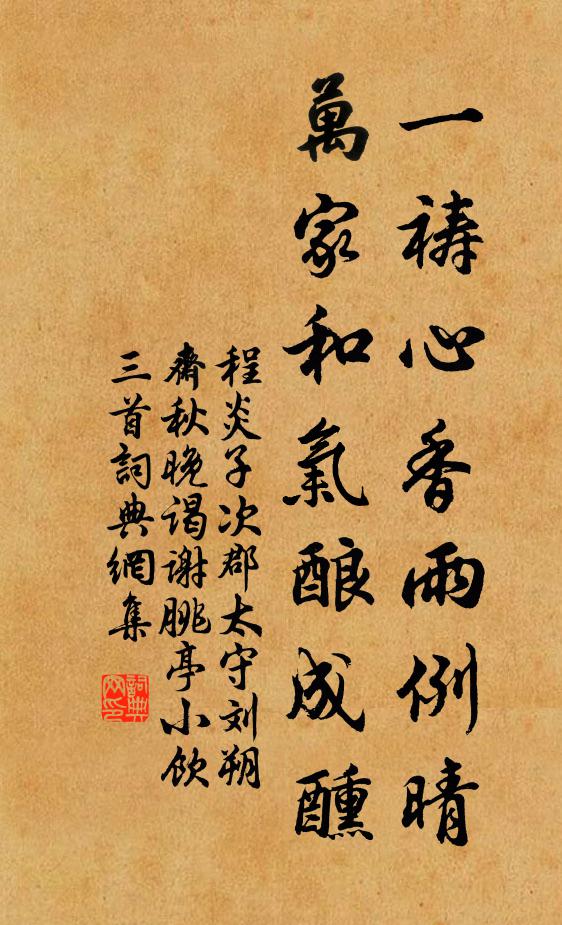 一祷心香雨例晴
萬家和氣酿成醺
程炎子次郡太守刘朔
齋秋晚谒谢朓亭小饮
三首詞典網集
詞典
网印